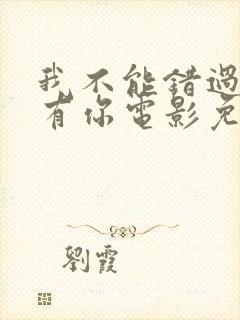 我不能錯過
有你電影免
劉霞